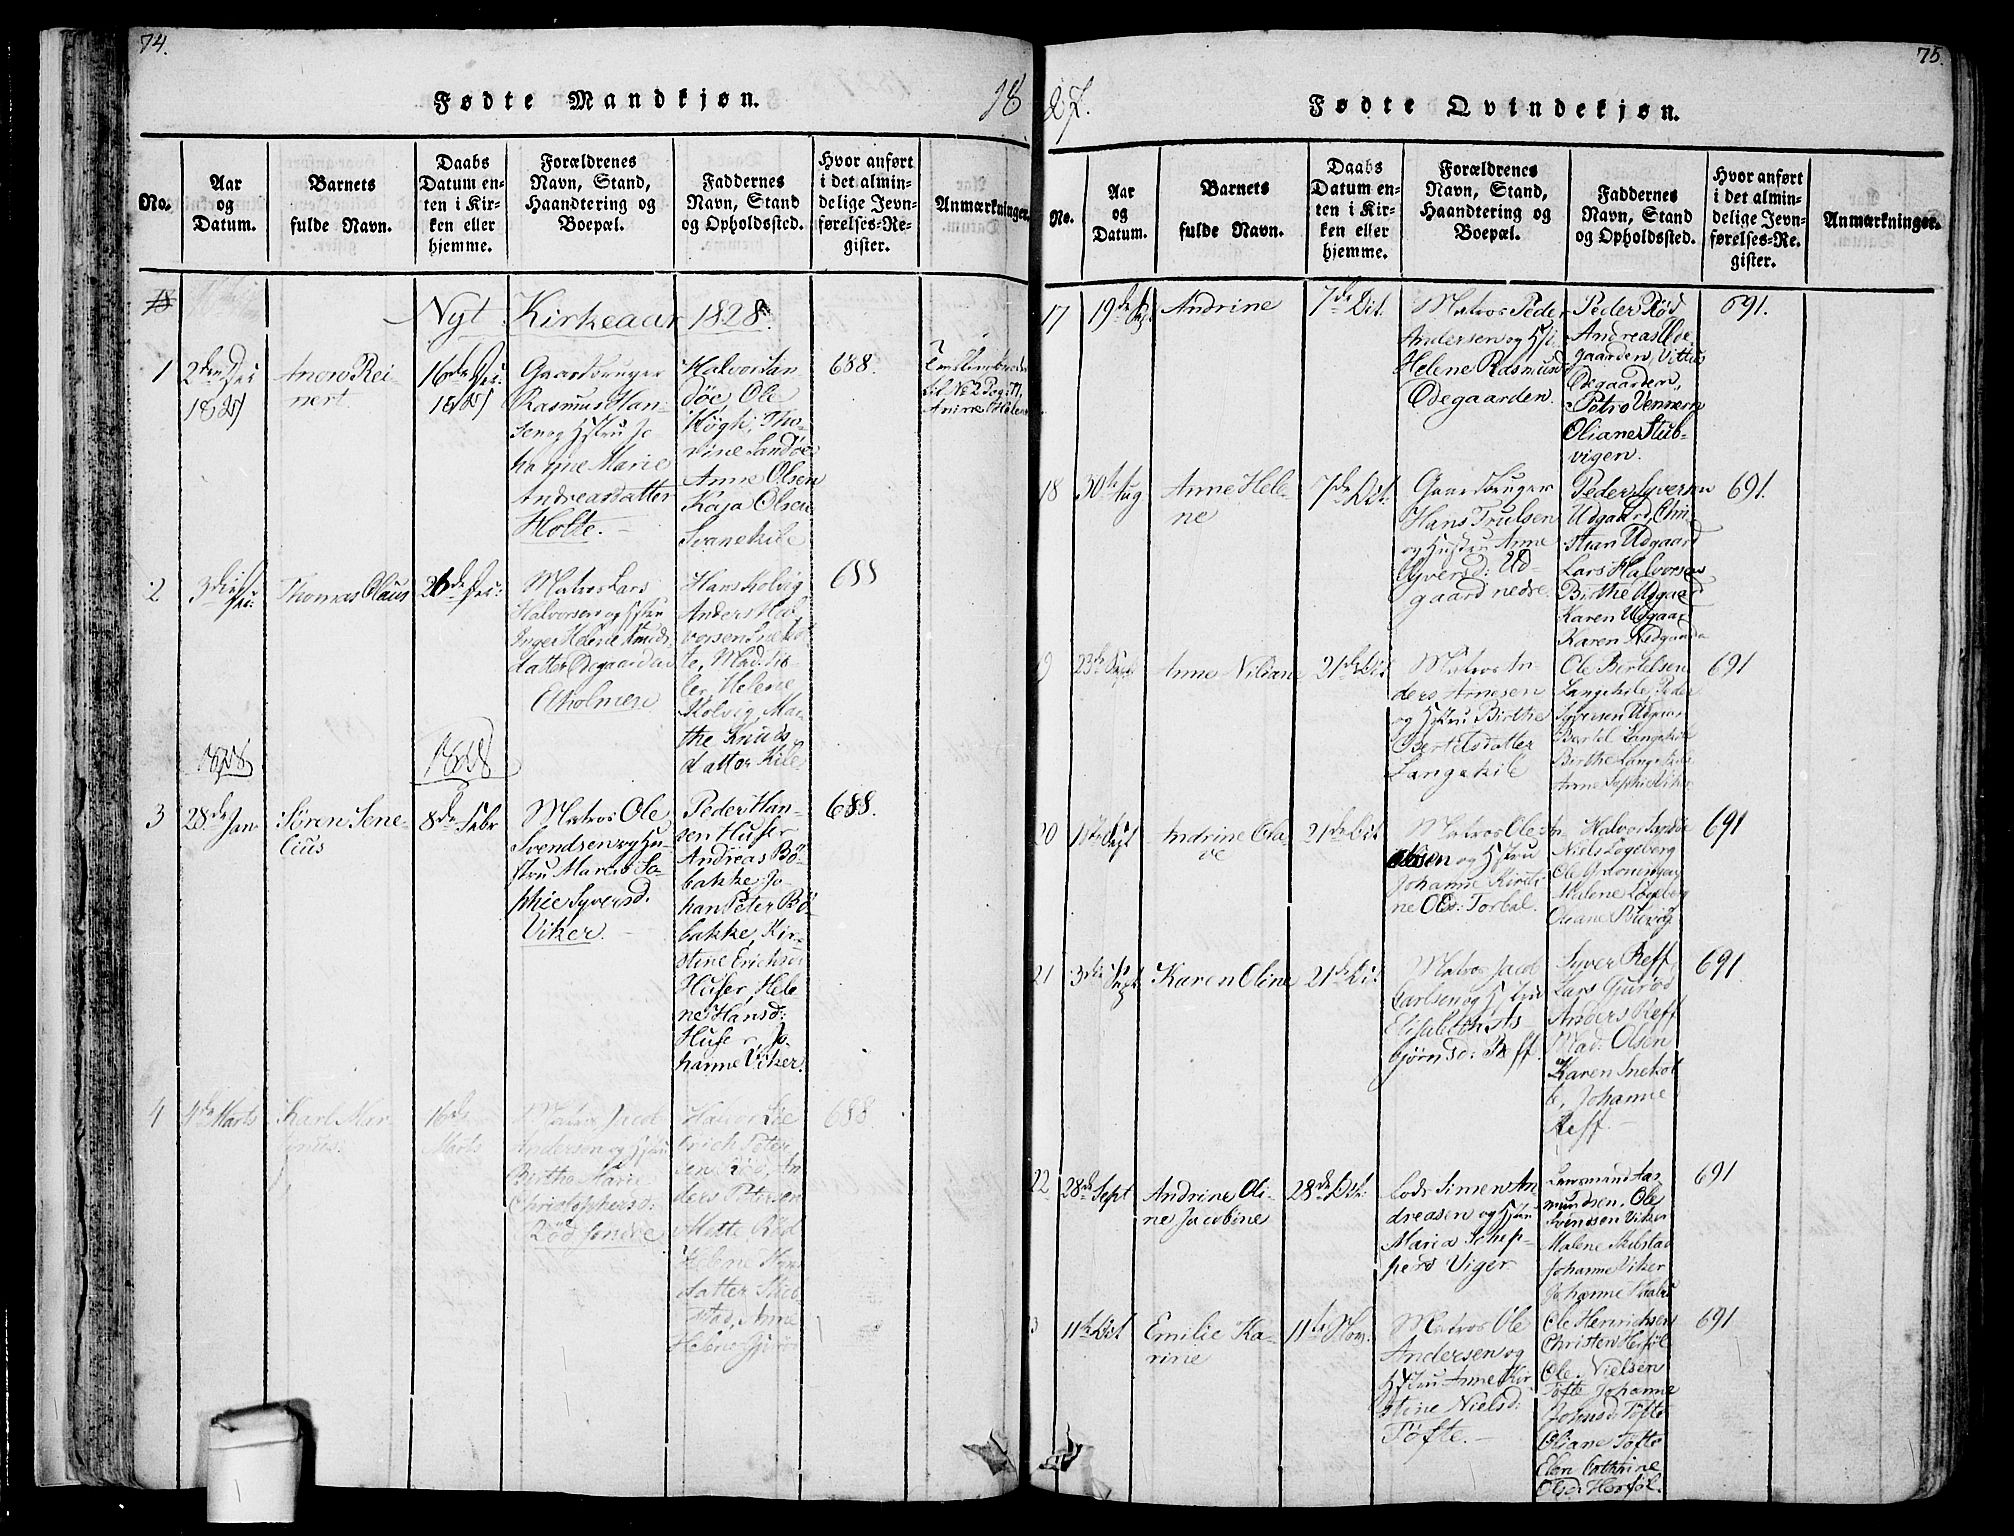 74.
Fødte Mandkjøn.
18
No.
Aar
og
Datum.
Barnets
fulde Navn.
Daabs
Datum en-
ten i Kir-
ken eller
hjemme.
Forældrenes
Navn, Stand,
Haandtering og
Boepæl.
Faddernes
Navn, Stand
og Opholdssted.
Hvor anført
i det almin-
delige Jevn-
førelses-Re-
gister.
Anmærkninger.
Nyt Kirkeaar 1828.
1
2den Dec
1827
Andro Rei-
nert.
16de Dec.
1827
Gaardbruger
Rasmus Han-
sen og Hstru Jo-
hanne Marie
Andreasdatter
Holte.
Halvor San-
döe Ole
Høgh, Tho-
rine Sandöe
Anne Olsen
Kaja Olsen
Svanekile
688.
Tvillingbroder
til No 2 Pag. 77,
Anne Helene
2
3die Dec.
Thomas Olaus
26de Dec.
Matros Lars
Halvorsen og Hstru
Inger Helene Knuds-
datter Ödegaarden
Aholmen
Hans Kolvig
Anders Hal-
vorsen Snekot-
te, Mad. Sib-
ler, Helene
Kolvig, Mar-
the Knuds-
datter Kile.
688
1828
1828
3
28de Jan.
Sören Sene-
cius
8de Febr
Matros Ole
Svendsen og Hu-
stru Maren So-
phie Syversd.
Viker.
Peder Han-
sen Huser
Andreas Bö-
bakke, Jo-
han Peter Bö-
bakke, Kir-
stine Erichsen
Huser, Hele-
ne Hansd:
Huser, Jo-
hanne Viker.
688.
4
4de Marts
Karl Mar-
tinus.
16de
Marts
Matros Jacob
Andersen og Hstru
Birthe Marie
Christophersd:
Röd söndre
Erich Peter-
sen Röd, An-
ders Petersen
Mette Röd
Helene Hans-
datter Skib-
stad, Anne
Helene
688.
75.
27.
Fødte Qvindekjøn.
No.
Aar
og
Datum.
Barnets
fulde Navn.
Daabs
Datum en-
ten i Kir-
ken eller
hjemme.
Forældrenes
Navn, Stand,
Haandtering og
Boepæl.
Faddernes
Navn, Stand
og Opholdssted.
Hvor anført
i det almin-
delige Jevn-
førelses-Re-
gister.
Anmærkninger.
17
19de Aug
Andrine
7de Oct.
Matros Peder
Andersen og Hst.
Helene Rasmusd
Ödegaarden.
Peder Röd
Andreas Öde-
gaarden, Vittus
Ödegaarden,
Petro Vennern
Oliane Stub-
vigen.
691.
18
30te Aug
Anne Hele-
ne
7de Oct.
Gaardbruger
Hans Trulsen
og Hustru Anne
Syversd: Ud-
gaard nedre.
Peder Syversen
Udgaard, Chri-
stian Udgaard
Lars Halvorsen
Birthe Udgaard
Karen Udgaar
Karen Nedgaarde
691.
9
23de Sept
Anne Niliane
21de Oct
Matros An-
ders Arnesen
og Hstru Birthe
Bertelsdatter
Langekile
Ole Bertelsen
Langekile, Peder
Syversen Udgaar
Bertel Langekile
Birthe Langekile
Anne Sophie Viker
691
20
Andrine Ola-
ve
21de Oct
Matros Ole An
Olsen og Hstru
Johanne Kirsti-
ne Ols: Torbal.
Halvor Sandöe
Niels Lögeberg
Malene Lögeberg
Oliane Brevig
691
21
3die Sept
Karen Oline
21de Oct.
Matros Jacob
Carlsen og Hstru
Elisabeth As-
björnsd: Reff.
Syver Reff
Lars Guröd
Anders Reff
Mad: Olsen
Karen Snekot-
te, Johanne
Reff.
691.
22
28de Sept
Andrine Oli-
ne Jacobine
28de Oct:
Lods Simen An-
dreasen og Hstru
Maria Schep-
pers Viger
Lensmand Aas-
mundsen, Ole
Svendsen Viker
Malene Skibstad
Johanne Viker
Johanne
691
3
11te Oct
Emilie Ka-
rine
11te Nov.
Matros Ole
Andersen og
Hstru Anne Kir-
stine Nielsd:
Töfte.
Ole Henrichsen
Christen Hersöl
Ole Nielsen
Töfte Johanne
Johnsd: Töfte
Oliane Töfte
Elen Cathrine
Olsd: Hersöl.
691